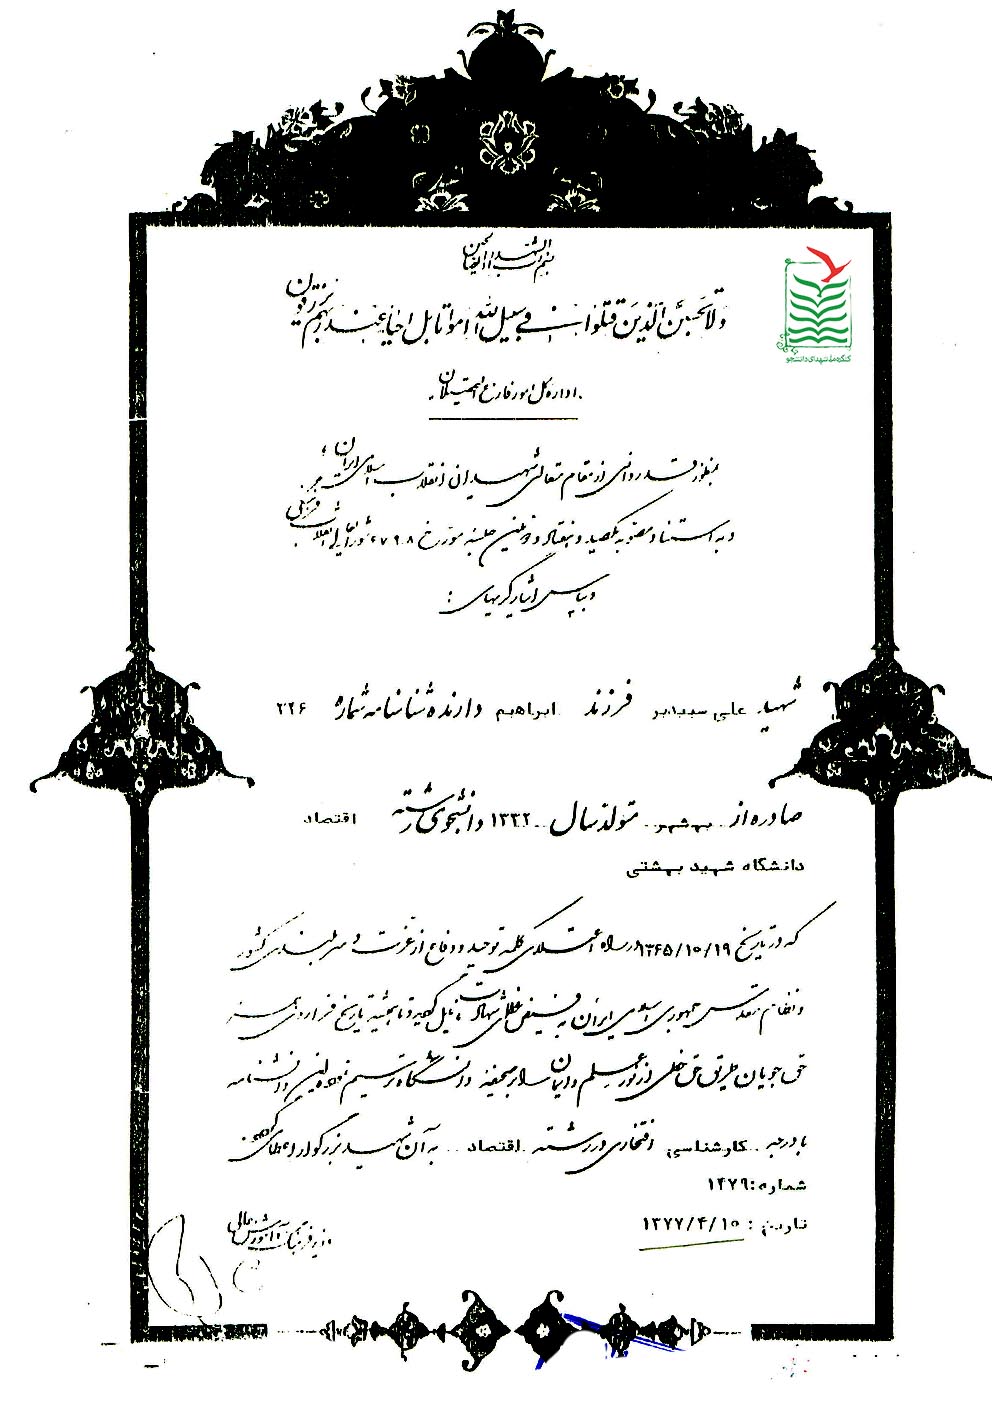 بسم رب الشهداء و الصدیقین
ولا تحسبن الذین قتلوا فی سبیل الله امواتا بل احیاء عند ربهم یرزقون
کنگره ملی شهدای دانشجو
اداره کل امور فارغ التحصیلان
بمنظور قدردانی از مقام متعالی شهیدان انقلاب اسلامی ایران
و به استناد مصوبه یکصد و هفتاد و جلسه مورخ شورایعالی انقلاب فرهنگی
و بپاس ایثارگریهای :
شهید علی سپیدبر فرزند ابراهیم دارنده شناسنامه شماره ۲۲۶
صادره از بهشهر متولد سال ۱۳۳۲ دانشجوی رشته اقتصاد
دانشگاه شهید بهشتی
که در تاریخ ۱۳۶۵/۱۰/۱۹ در راه اعتلای کلمه توحید و دفاع از عزت و سربلندی کشور
و نظام مقدس جمهوری اسلامی ایران به فیض عظمای شهادت نایل گردید و تا همیشه تاریخ فرا روی همه
حق جویان طریق حق خطی از نور علم و ایمان را بر صحیفه دانشگاه ترسیم نموده این دانشنامه
با درجه کارشناسی افتخاری در رشته اقتصاد به آن شهید بزرگوار اعطا می گردد.
شماره: ۱۴۷۹
تاریخ : ۱۳۷۷/۴/۱۰
وزیر فرهنگ و آموزش عالی